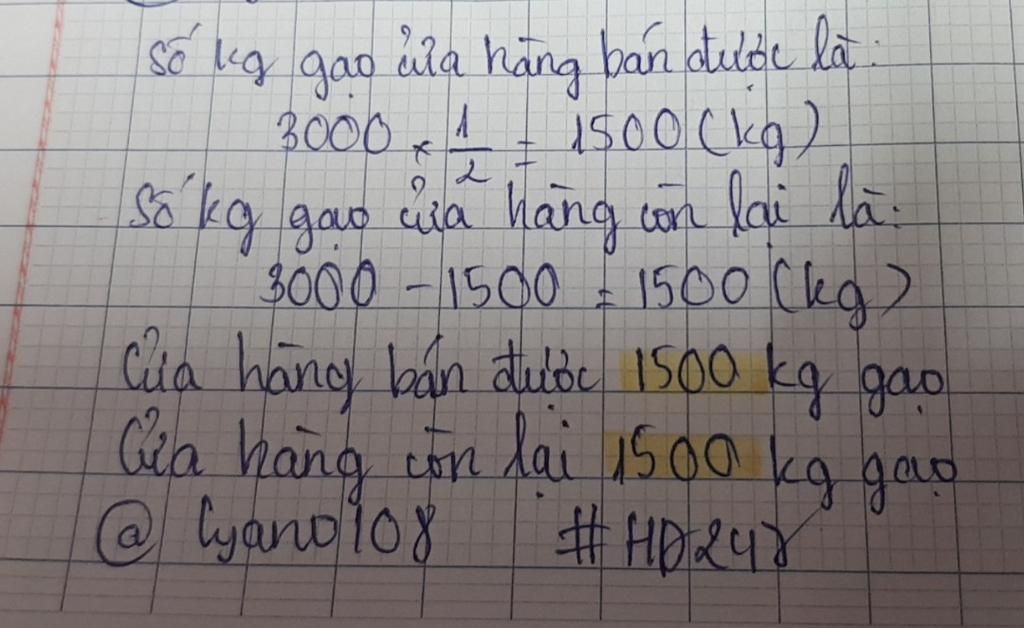 Số kg gạo cửa hàng bán được là:
3000 × 1/2 = 1500 (kg)
Số kg gạo cửa hàng còn lại là:
3000 - 1500 = 1500 (kg)
Cửa hàng bán được 1500 kg gạo
Cửa hàng còn lại 1500 kg gạo
@ Cyano108 #HD247